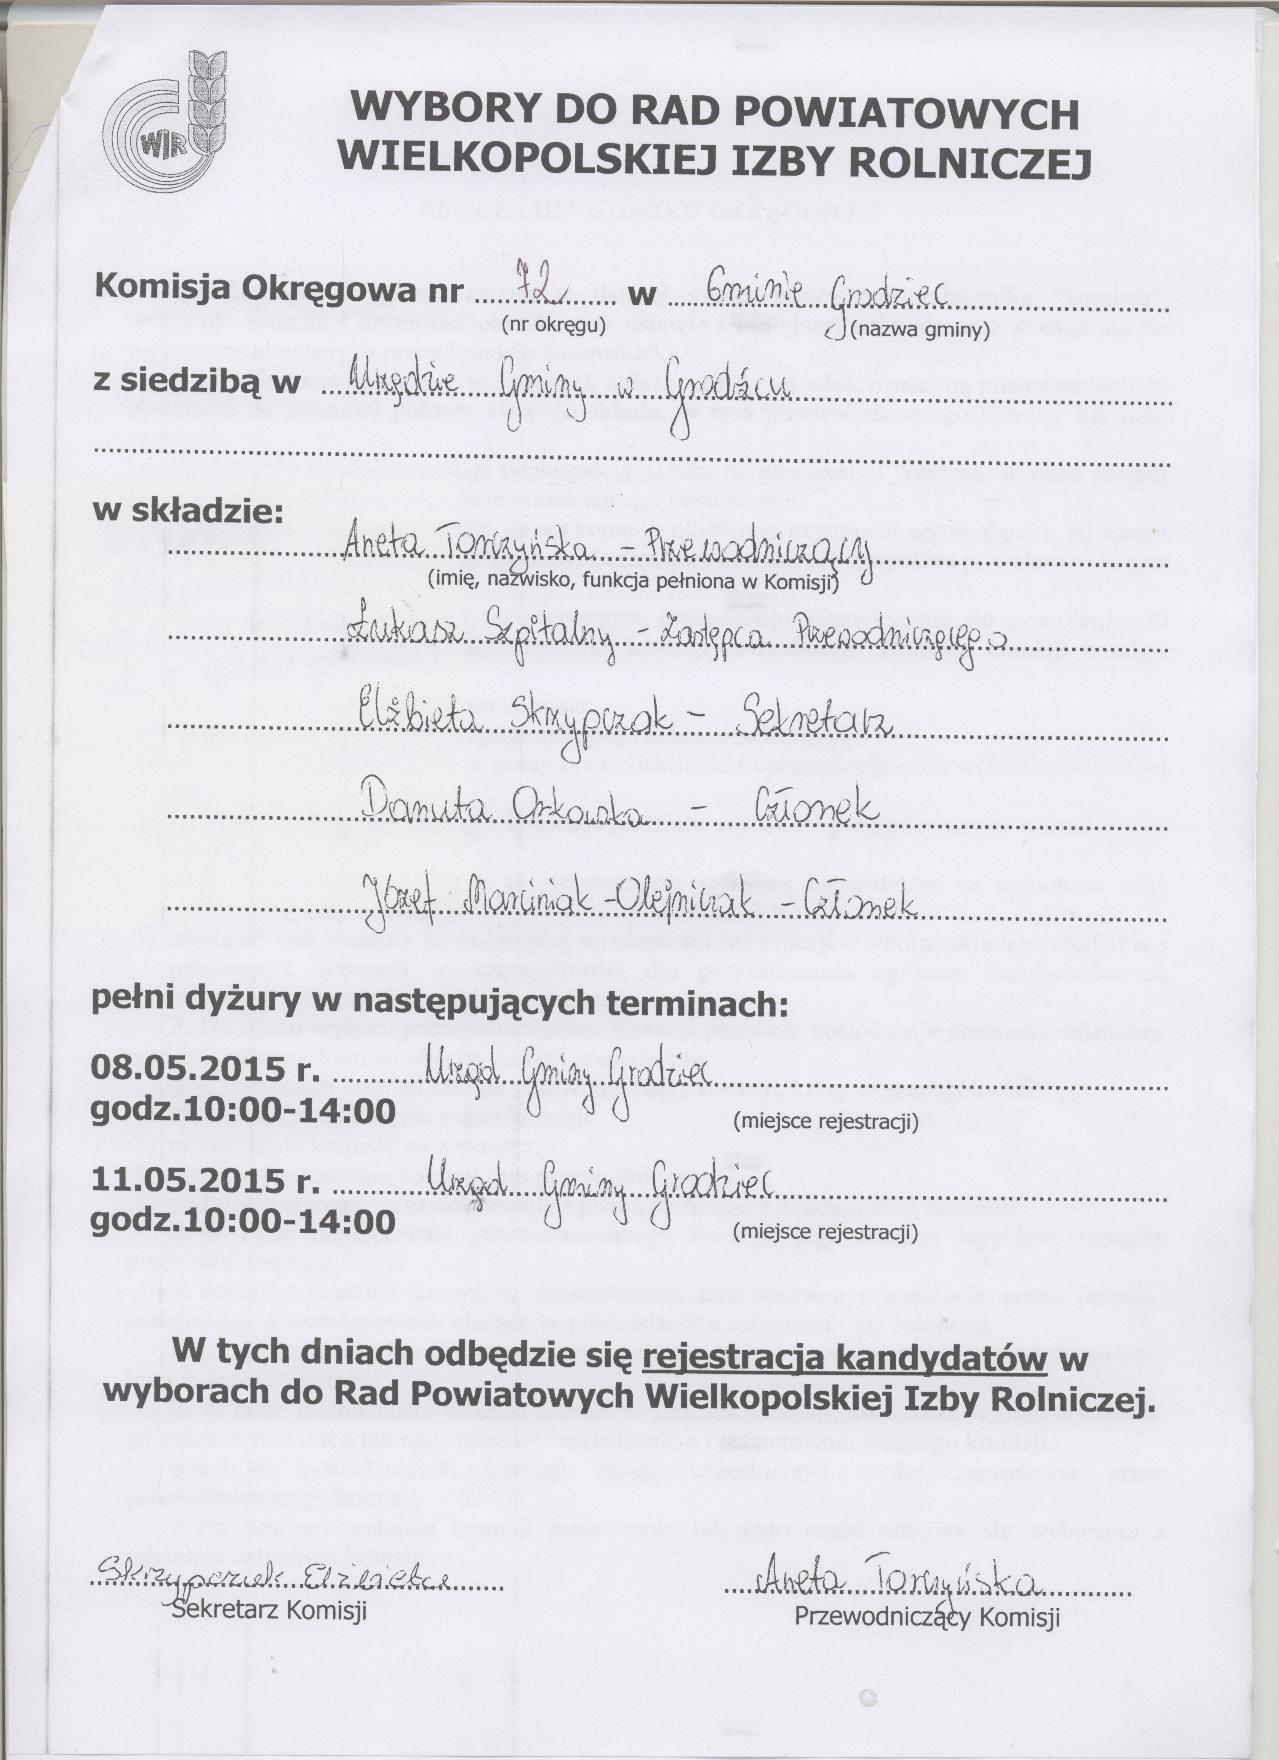 WIR
WYBORY DO RAD POWIATOWYCH
WIELKOPOLSKIEJ IZBY ROLNICZEJ
Komisja Okręgowa nr 72 w Gminie Grodziec
(nr okręgu) (nazwa gminy)
z siedzibą w Urzędzie Gminy w Grodźcu
w składzie:
Aneta Tomczyńska - Przewodniczący
(imię, nazwisko, funkcja pełniona w Komisji)
Łukasz Szpitalny - Zastępca Przewodniczącego
Elżbieta Skrzypczak - Sekretarz
Danuta Orkowska - Członek
Józef Marciniak-Olejniczak - Członek
pełni dyżury w następujących terminach:
08.05.2015 r. Urząd Gminy Grodziec
godz.10:00-14:00 (miejsce rejestracji)
11.05.2015 r. Urząd Gminy Grodziec
godz.10:00-14:00 (miejsce rejestracji)
W tych dniach odbędzie się rejestracja kandydatów w
wyborach do Rad Powiatowych Wielkopolskiej Izby Rolniczej.
Skrzypczak Elżbieta Aneta Tomczyńska
Sekretarz Komisji Przewodniczący Komisji